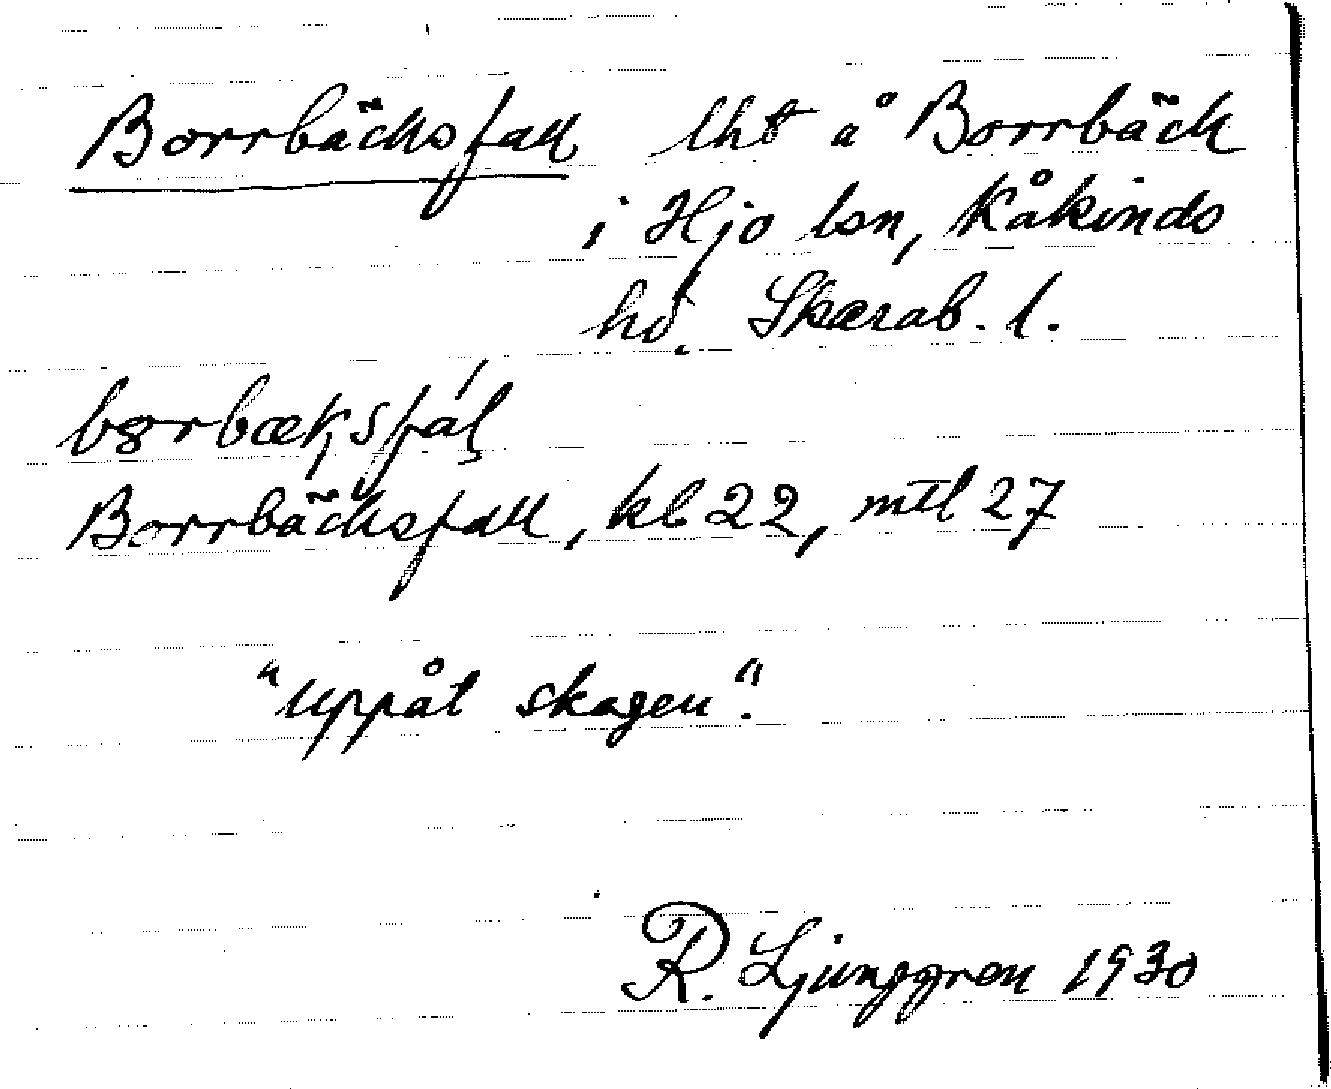 Borrbäcksfall lht å Borrbäck
i Hjo lsn, Kåkinds
hd. Skarab. l.
Borrbäcksfall, kl 22, mtl 27
"uppåt skogen".
R. Ljunggren 1930